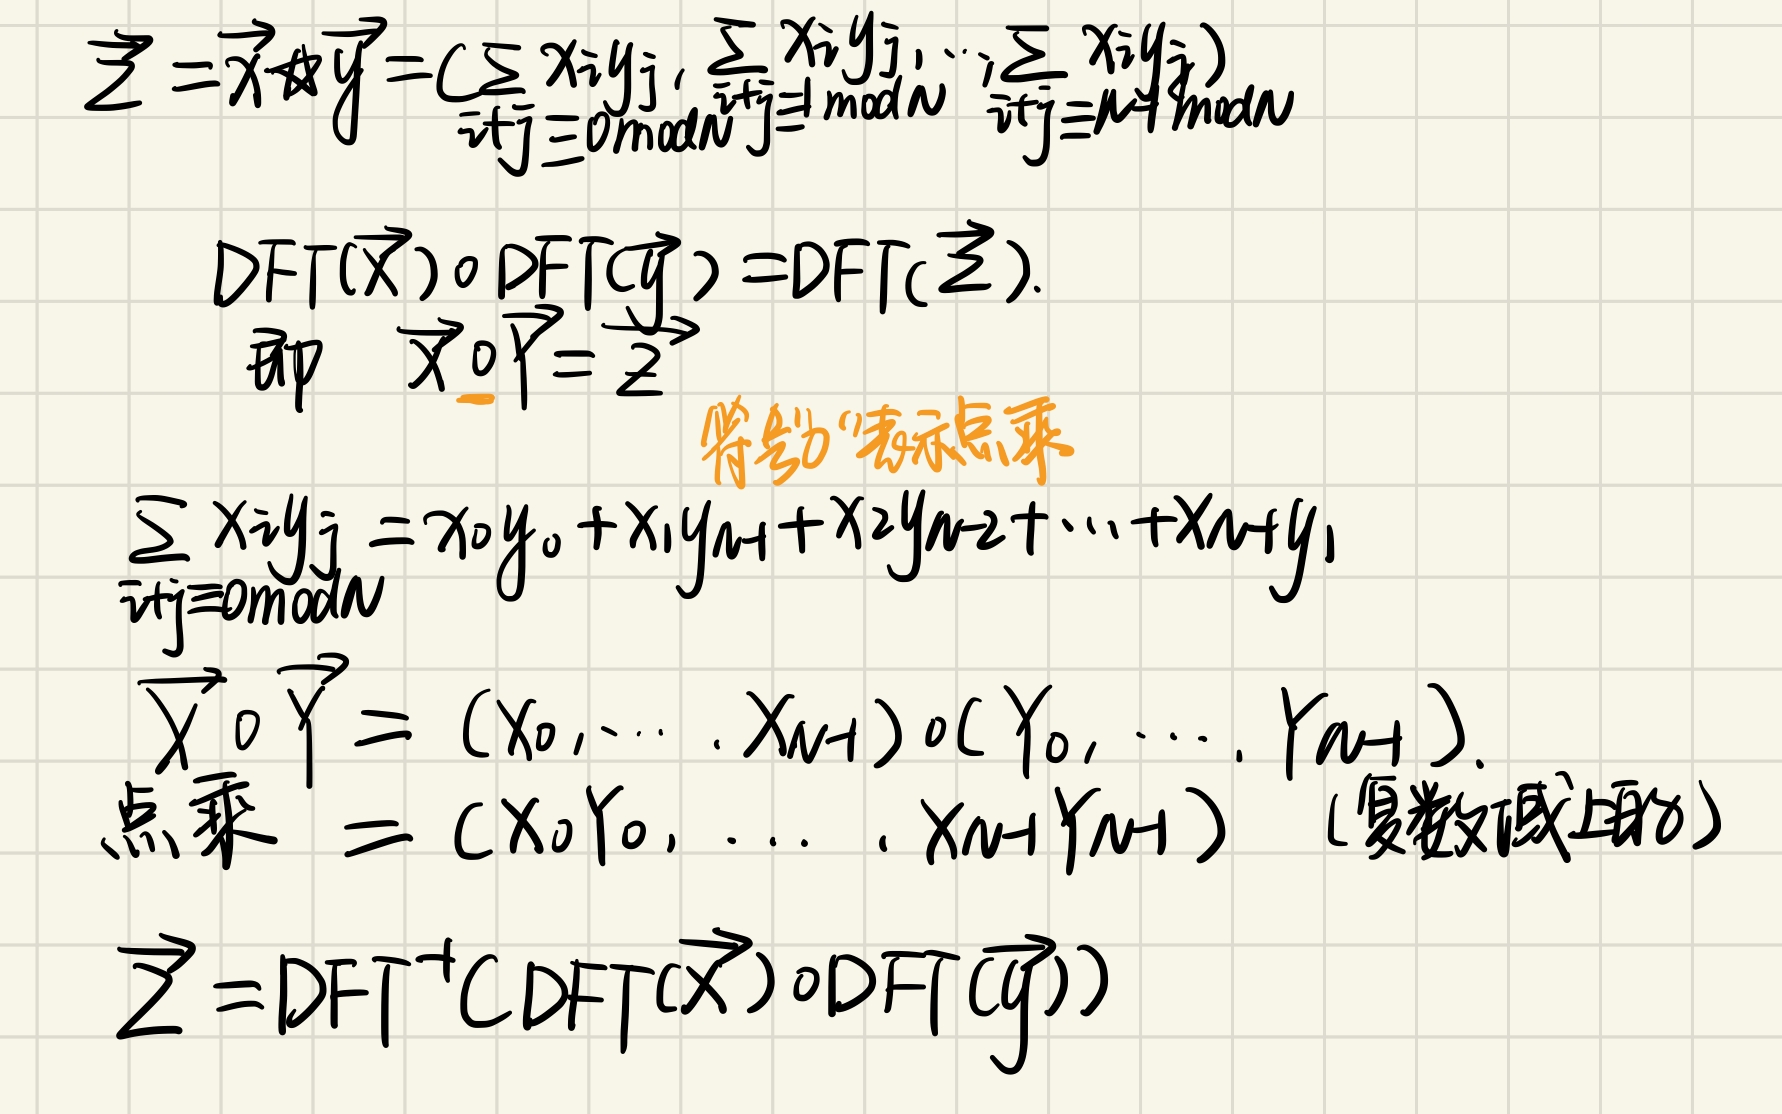 z⃗ = x⃗ ☆ y⃗ = (∑_{i+j≡0 mod N} x_i y_j, ∑_{i+j≡1 mod N} x_i y_j, …, ∑_{i+j≡N-1 mod N} x_i y_j)
DFT(x⃗)∘DFT(y⃗) = DFT(z⃗).
即 X⃗∘Y⃗ = Z⃗
符号"∘"表示点乘
∑_{i+j≡0 mod N} x_i y_j = x_0 y_0 + x_1 y_{N-1} + x_2 y_{N-2} + … + x_{N-1} y_1
X⃗∘Y⃗ = (X_0, …. X_{N-1})∘(Y_0, …. Y_{N-1}).
点乘 = (X_0Y_0, …. X_{N-1}Y_{N-1}) (复数域上的)
z⃗ = DFT^{-1}(DFT(x⃗)∘DFT(y⃗))